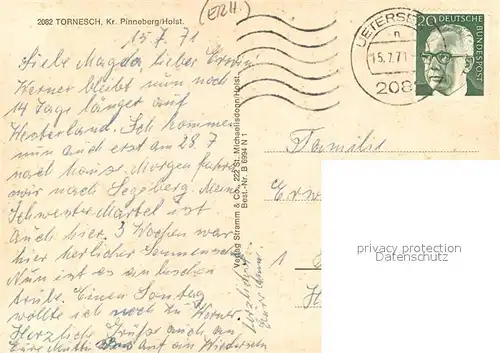 2082 TORNESCH, Kr. Pinneberg/Holst.
(ETZH.)
15.7.71
Liebe Magda, lieber Erwin!
Werner bleibt nun noch
14 Tage länger auf
Westerland. Ich komme
nun auch erst am 28.7
nach Hause. Morgen fahren
wir nach Segeberg. Meine
Schwester Martel ist
auch hier. 3 Wochen war
hier herlicher Sonnensch
Nun ist es ein bischen
trübe. Einen Sonntag
wollte ich noch zu Werner
Herzliche Grüße auch an
Eure Mutti Auf ein Wiedersehn
herzlichst
Eure
Verlag Stramm & Co., 222 St. Michaelisdonn/Holst.
Best.-Nr. B 6994 N 1
UETERSE
n
15.7.71
208
20 DEUTSCHE
BUNDESPOST
Familie
Erw
privacy protection
Datenschutz